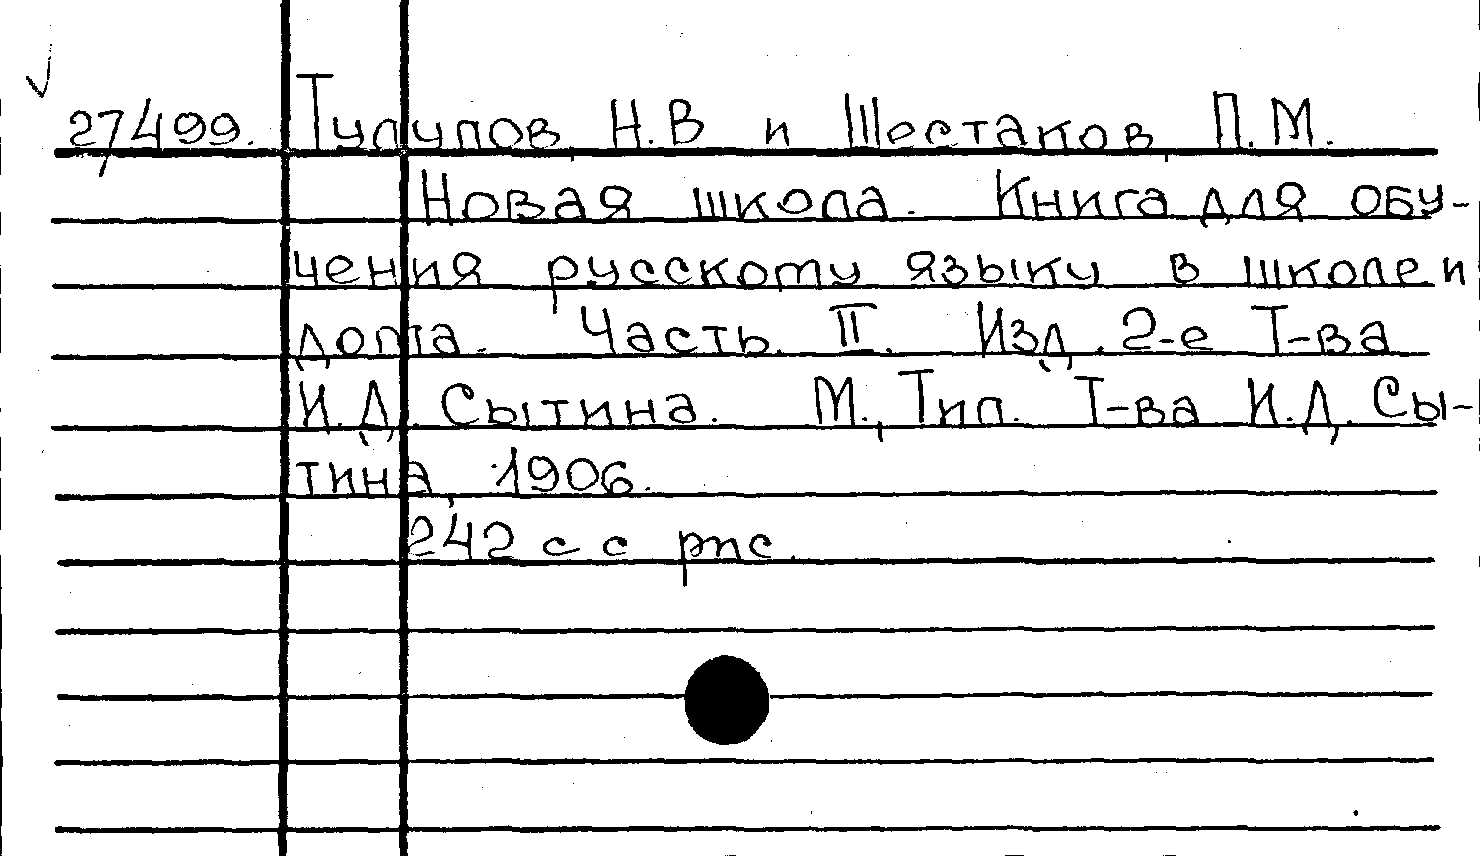 27499. Тулупов, Н.В и Шестаков, П.М.
Новая школа. Книга для обу-
чения русскому языку в школе и
дома. Часть II. Изд. 2-е Т-ва
И.Д. Сытина. М., Тип. Т-ва И.Д. Сы-
тина, 1906.
242 с с рис.